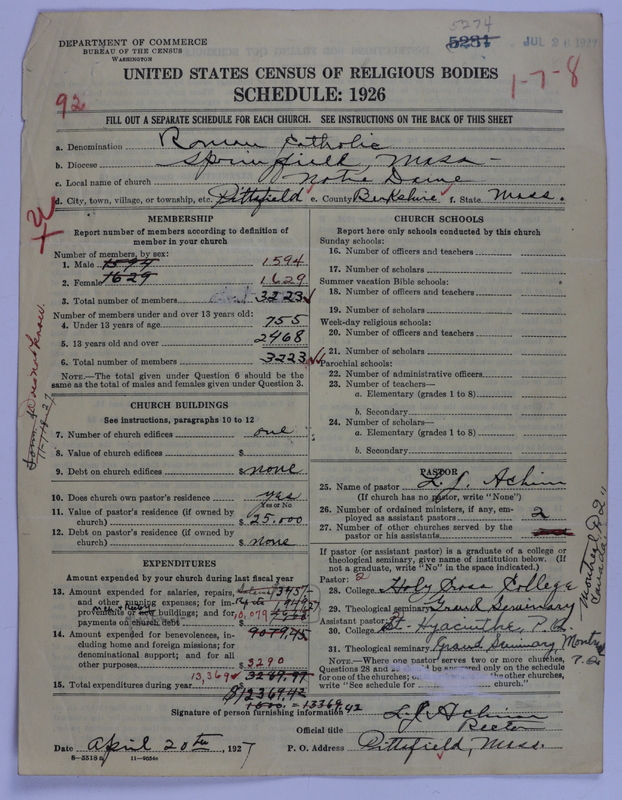 5274
5231
JUL 2 1927
DEPARTMENT OF COMMERCE
BUREAU OF THE CENSUS
WASHINGTON
UNITED STATES CENSUS OF RELIGIOUS BODIES
SCHEDULE: 1926
1-7-8
92
FILL OUT A SEPARATE SCHEDULE FOR EACH CHURCH. SEE INSTRUCTIONS ON THE BACK OF THIS SHEET
a. Denomination Roman Catholic
b. Diocese Springfield, Mass-
c. Local name of church Notre Dame
d. City, town, village, or township, etc. Pittsfield e. County Berkshire f. State Mass.
MEMBERSHIP
Report number of members according to definition of
member in your church
Number of members, by sex:
1. Male 1594 1594
2. Female 1629 1629
3. Total number of members 3223
Number of members under and over 13 years old:
4. Under 13 years of age 755
5. 13 years old and over 2468
6. Total number of members 3223
NOTE.—The total given under Question 6 should be the
same as the total of males and females given under Question 3.
CHURCH BUILDINGS
See instructions, paragraphs 10 to 12
7. Number of church edifices one
8. Value of church edifices $
9. Debt on church edifices $ none
10. Does church own pastor's residence yes
Yes or No
11. Value of pastor's residence (if owned by
church) $ 25.000
12. Debt on pastor's residence (if owned by
church) $ none
EXPENDITURES
Amount expended by your church during last fiscal year
13. Amount expended for salaries, repairs,
and other running expenses; for im-
provements or new buildings; and for
payments on church debt 10,079
14. Amount expended for benevolences, in- 9079,45
cluding home and foreign missions; for
denominational support; and for all
other purposes $ 3290
15. Total expenditures during year 13,369
$12369,42
1000. = 13369,42
CHURCH SCHOOLS
Report here only schools conducted by this church
Sunday schools:
16. Number of officers and teachers
17. Number of scholars
Summer vacation Bible schools:
18. Number of officers and teachers
19. Number of scholars
Week-day religious schools:
20. Number of officers and teachers
21. Number of scholars
Parochial schools:
22. Number of administrative officers
23. Number of teachers—
a. Elementary (grades 1 to 8)
b. Secondary
24. Number of scholars—
a. Elementary (grades 1 to 8)
b. Secondary
PASTOR
25. Name of pastor L. J. Achim
(If church has no pastor, write "None")
26. Number of ordained ministers, if any, em-
ployed as assistant pastors 2
27. Number of other churches served by the
pastor or his assistants
If pastor (or assistant pastor) is a graduate of a college or
theological seminary, give name of institution below. (If
not a graduate, write "No" in the space indicated.)
Pastor: 2
28. College Holy Cross College
29. Theological seminary Grand Seminary
Montreal P.Q.
Canada
Assistant pastor:
30. College St. Hyacinthe, P.Q.
31. Theological seminary Grand Seminary Montreal
P.Q.
NOTE.—Where one pastor serves two or more churches,
Questions 28 and should be answered only on the schedule
for one of the churches; the other churches,
write "See schedule for church."
Signature of person furnishing information L. J. Achim
Official title Rector
Date April 20th, 1927 P. O. Address Pittsfield, Mass.
8—5518a 11—9054c